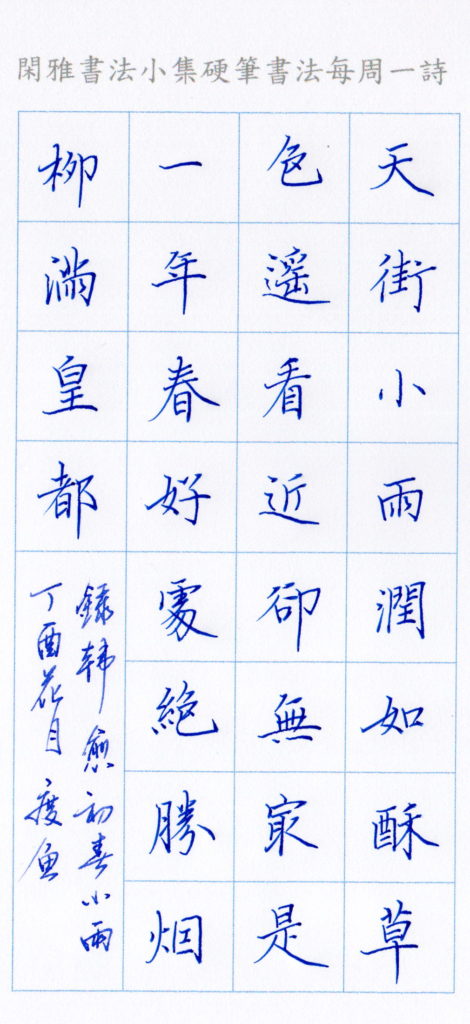 閑雅書法小集硬筆書法每周一詩
天街小雨潤如酥草
色遙看近卻無㝡是
一年春好處絕勝烟
柳滿皇都
錄韓愈初春小雨
丁酉花月廋魚